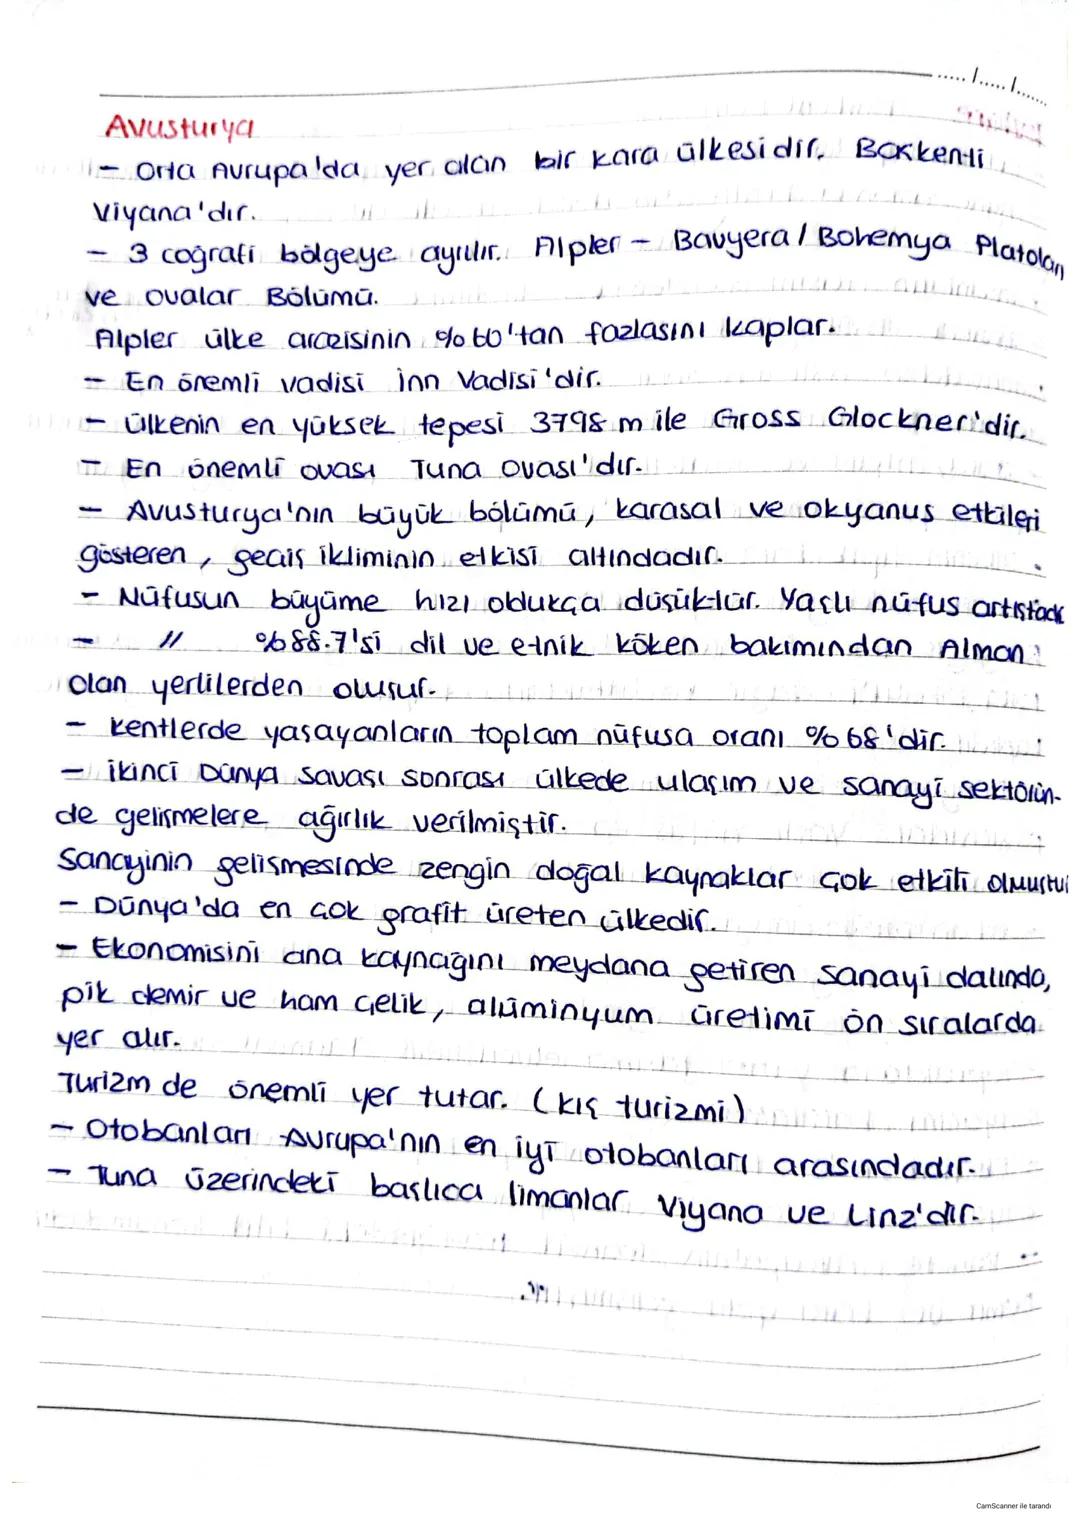 ..... /..... /......
Avusturya
- Orta Avrupa'da yer alan bir kara ülkesidir. Başkenti
Viyana'dır.
- 3 coğrafi bölgeye ayrılır. Alpler - Bavyera / Bohemya Platoları
ve ovalar Bölümü.
Alpler ülke arazisinin %60'tan fazlasını kaplar.
- En önemli vadisi İnn Vadisi'dir.
- Ülkenin en yüksek tepesi 3798 m ile Gross Glockner'dir.
- En önemli ovası Tuna Ovası'dır.
- Avusturya'nın büyük bölümü, karasal ve okyanus etkileri
gösteren, geçiş ikliminin etkisi altındadır.
- Nüfusun büyüme hızı oldukça düşüktür. Yaşlı nüfus artıştadır
- " %88.7'si dil ve etnik köken bakımından Alman
olan yerlilerden oluşur.
- Kentlerde yaşayanların toplam nüfusa oranı %68'dir.
- İkinci Dünya Savaşı sonrası ülkede ulaşım ve sanayi sektörün-
de gelişmelere ağırlık verilmiştir.
Sanayinin gelişmesinde zengin doğal kaynaklar çok etkili olmuştur
- Dünya'da en çok grafit üreten ülkedir.
- Ekonomisini ana kaynağını meydana getiren sanayi dalında,
pik demir ve ham çelik, alüminyum üretimi ön sıralarda
yer alır.
Turizm de önemli yer tutar. (kış turizmi)
- Otobanları Avrupa'nın en iyi otobanları arasındadır.
- Tuna üzerindeki başlıca limanlar Viyana ve Linz'dir.
CamScanner ile tarandı